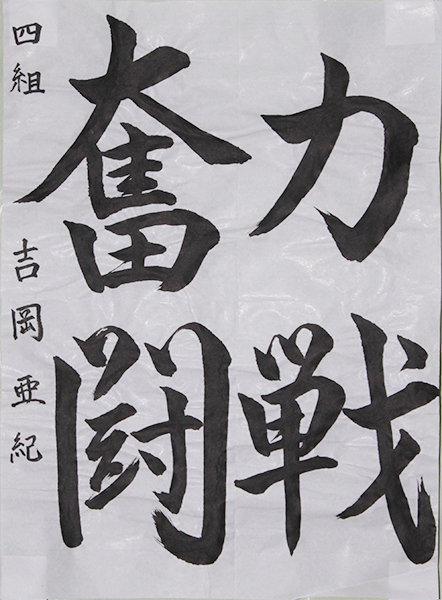 力戦
奮闘
四組 吉岡亜紀